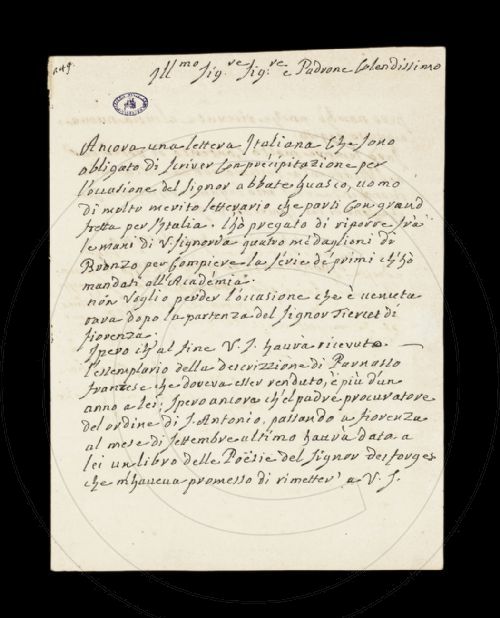 249
Ill.mo Sig.re Sig.re e Padrone Colendissimo
Ancora una lettera Italiana che sono
obligato di scriver con précipitazione per
l'occasione del signor abbate guasco, uomo
di molto merito letterario che parti con grand
fretta per l'Italia. l'hò pregato di riporre frà
le mani di V. signoria quatro médaglioni di
Bronzo per compiere la série de primi ch'hò
mandati all'Académia.
non voglio perder l'occasione che è venuta
rara dopo la partenza del signor Tiercet di
fiorenza.
spero ch'al fine V. S. haurà ricevuto
l'essemplario della descrizzione di Parnasso
francese che doveva esser renduto, è più d'un
anno a lei; spero ancora ch'el padre procuratore
del ordine di S. Antonio, passando a fiorenza
al mese di settembre ultimo haurà dato a
lei un libro delle Poësie del signor desforges
che m'haveva promesso di rimetter' a V. S.